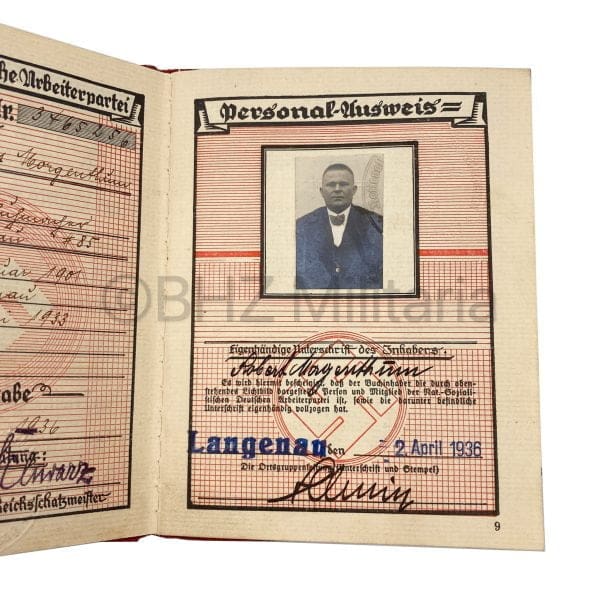 che Arbeiterpartei
Nr. 5465256
Morgenthum
#85
uar 190
nau
i 1933
gabe
1936
tung:
Schwarz
Reichsschatzmeister
Personal-Ausweis
©BHZ Militaria
Eigenhändige Unterschrift des Inhabers:
Robert Morgenthum
Es wird hiermit bescheinigt, daß der Buchinhaber die durch oben-
stehendes Lichtbild dargestellte Person und Mitglied der Nat.-Soziali-
stischen Deutschen Arbeiterpartei ist, sowie die darunter befindliche
Unterschrift eigenhändig vollzogen hat.
Langenau den 2. April 1936
Die Ortsgruppenleitung (Unterschrift und Stempel)
9